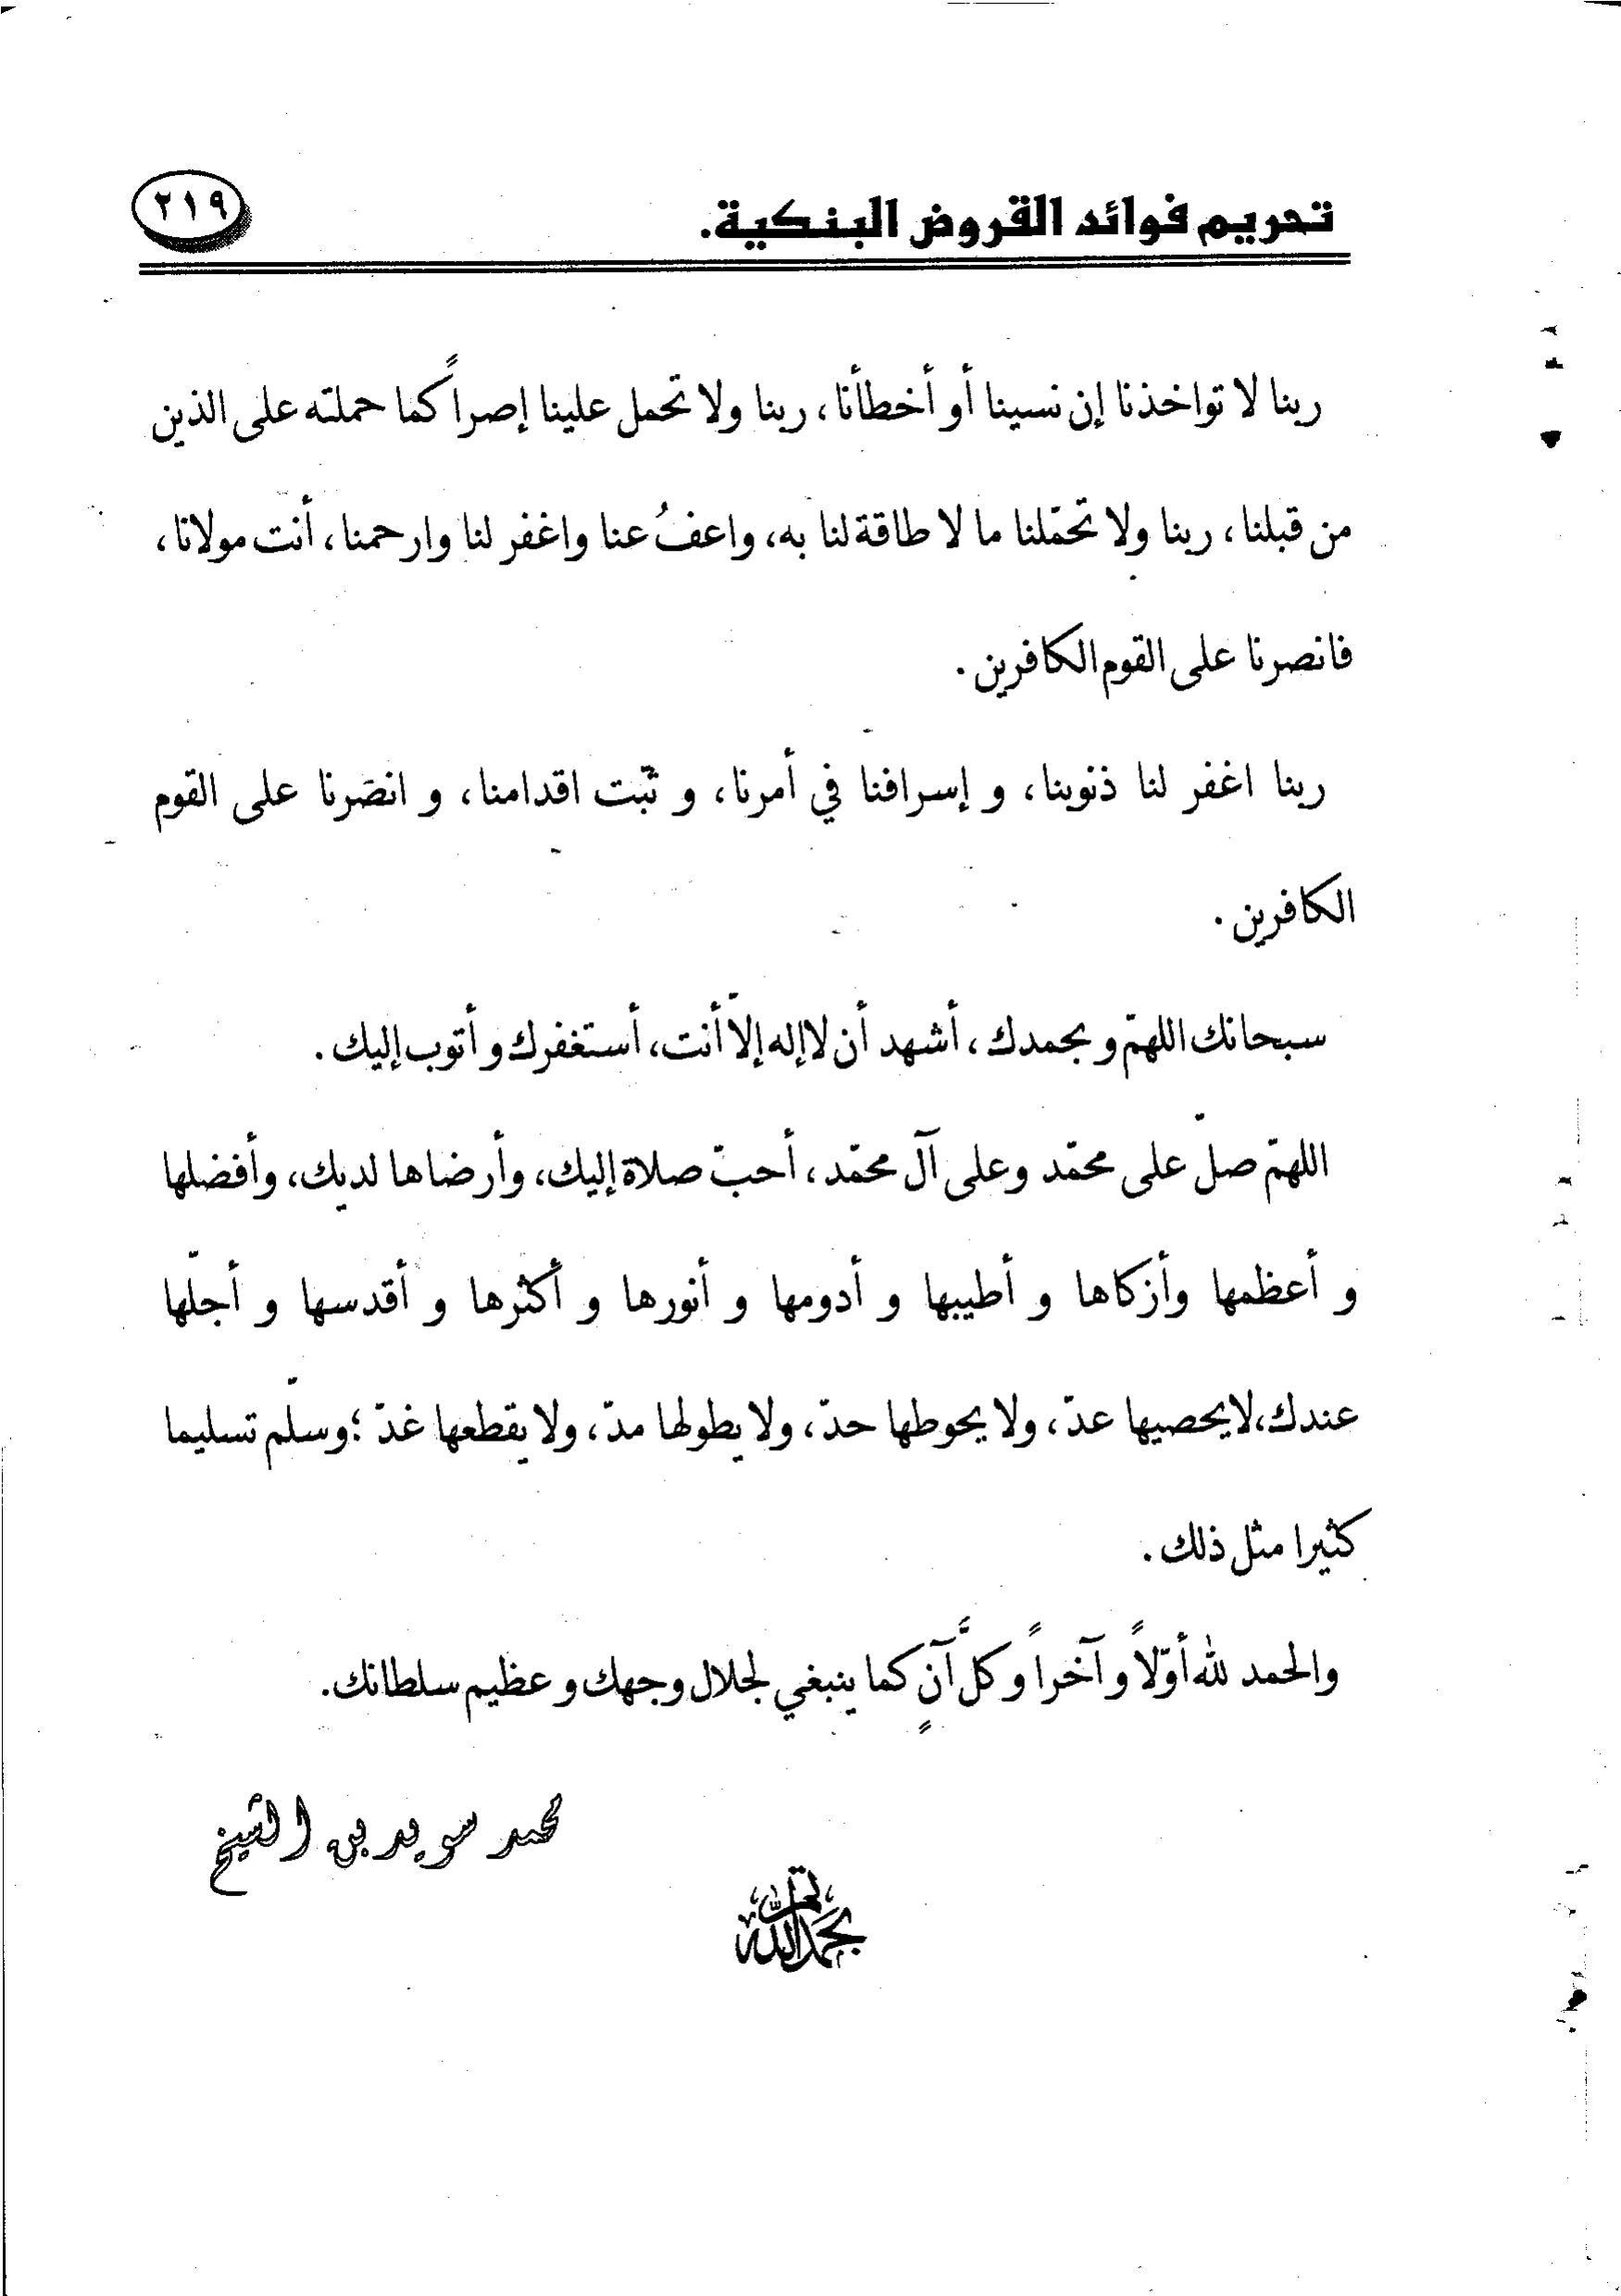 تحريم فوائد القروض البنكية.
٢١٩
ربنا لا تواخذنا إن نسينا أو أخطأنا، ربنا ولا تحمل علينا إصراً كما حملته على الذين
من قبلنا، ربنا ولا تحمّلنا ما لا طاقة لنا به، واعفُ عنا واغفر لنا وارحمنا، أنت مولانا،
فانصرنا على القوم الكافرين.
ربنا اغفر لنا ذنوبنا، و إسرافنا في أمرنا، و ثبّت اقدامنا، و انصَرنا على القوم
الكافرين.
سبحانك اللهمّ و بحمدك، أشهد أن لا إله إلاّ أنت، أستغفرك و أتوب إليك.
اللهمّ صلّ على محمّد وعلى آل محمّد، أحبّ صلاة إليك، وأرضاها لديك، وأفضلها
و أعظمها وأزكاها و أطيبها و أدومها و أنورها و أكثرها و أقدسها و أجلّها
عندك،لا يحصيها عدّ، ولا يحوطها حدّ، ولا يطولها مدّ، ولا يقطعها غدّ ؛وسلّم تسليما
كثيرا مثل ذلك.
والحمد لله أوّلاً و آخراً و كلَّ آنٍ كما ينبغي لجلال وجهك و عظيم سلطانك.
محمد سويد بن الشيخ
بحمد الله تعالى